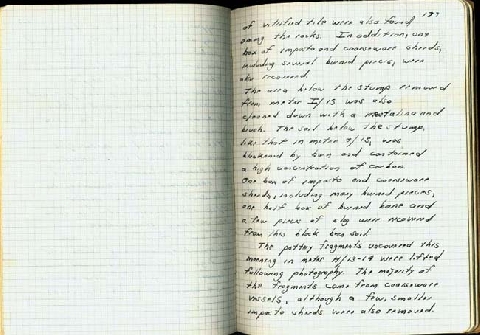 137
of vitrified tile were also found
among the rocks. In addition, one
box of impasto and coarseware sherds,
including several burned pieces, were
also recovered.
The area below the stump removed
from meter I/13 was also
cleaned down with a and
brush. The soil below the stump,
like that in meter I/13, was
blackened by and contained
a high concentration of carbon.
One box of impasto and coarseware
sherds, including many burned pieces,
one half box of burned bone and
a few pieces of slag were recovered
from this black soil.
The pottery fragments uncovered this
morning in meter were lifted
following photography. The majority of
the fragments came from coarseware
vessels, although a few smaller
impasto sherds were also removed.